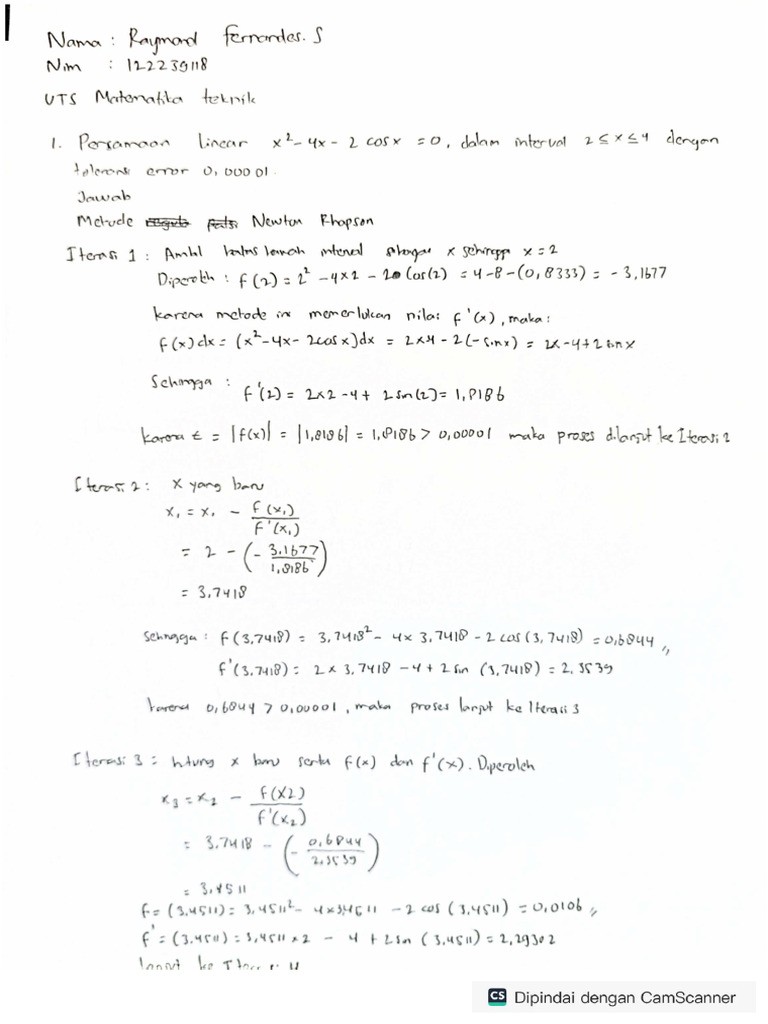 Nama : Raymond Fernandes. S
Nim : 122239118
UTS Matematika teknik
1. Persamaan linear x² - 4x - 2 cos x = 0, dalam interval 2 ≤ x ≤ 4 dengan
toleransi error 0,00001.
Jawab
Metode Newton Rhapson
Iterasi 1 : Ambil batas bawah interval sebagai x sehingga x = 2
Diperoleh : f(2) = 2² - 4x2 - 2 Cos(2) = 4-8-(0,8333) = - 3,1677
karena metode ini memerlukan nilai f'(x), maka :
f(x)dx = (x² - 4x - 2cos x)dx = 2x4 - 2(-sinx) = 2x-4+2 sinx
Sehingga :
f'(2) = 2x2 -4+ 2 sin(2) = 1,8186
karena ε = |f(x)| = |1,8186| = 1,8186 > 0,00001 maka proses dilanjut ke Iterasi 2
Iterasi 2 : x yang baru
x₁ = x₁ - f(x₁)/f'(x₁)
= 2 - (- 3.1677/1,8186)
= 3,7418
Sehingga : f(3,7418) = 3,7418² - 4x 3,7418 - 2 cos(3,7418) = 0,6844 //
f'(3,7418) = 2 x 3,7418 -4 + 2 sin (3,7418) = 2,3539
karena 0,6844 > 0,00001, maka proses lanjut ke Iterasi 3
Iterasi 3 : hitung x baru serta f(x) dan f'(x). Diperoleh
x₃ = x₂ - f(X2)/f'(x₂)
= 3,7418 - (- 0,6844/2,3539)
= 3,4511
f = (3,4511) = 3,4511² - 4x3,4511 - 2 cos (3,4511) = 0,0106 //
f' = (3,4511) = 3,4511 x 2 - 4 + 2 sin (3,4511) = 2,29302
lanjut ke
CS Dipindai dengan CamScanner